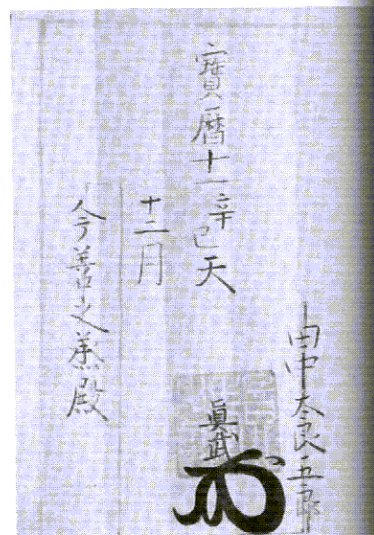 田中奈良五郎
眞武
寶暦十一辛巳天
十二月
今善 殿